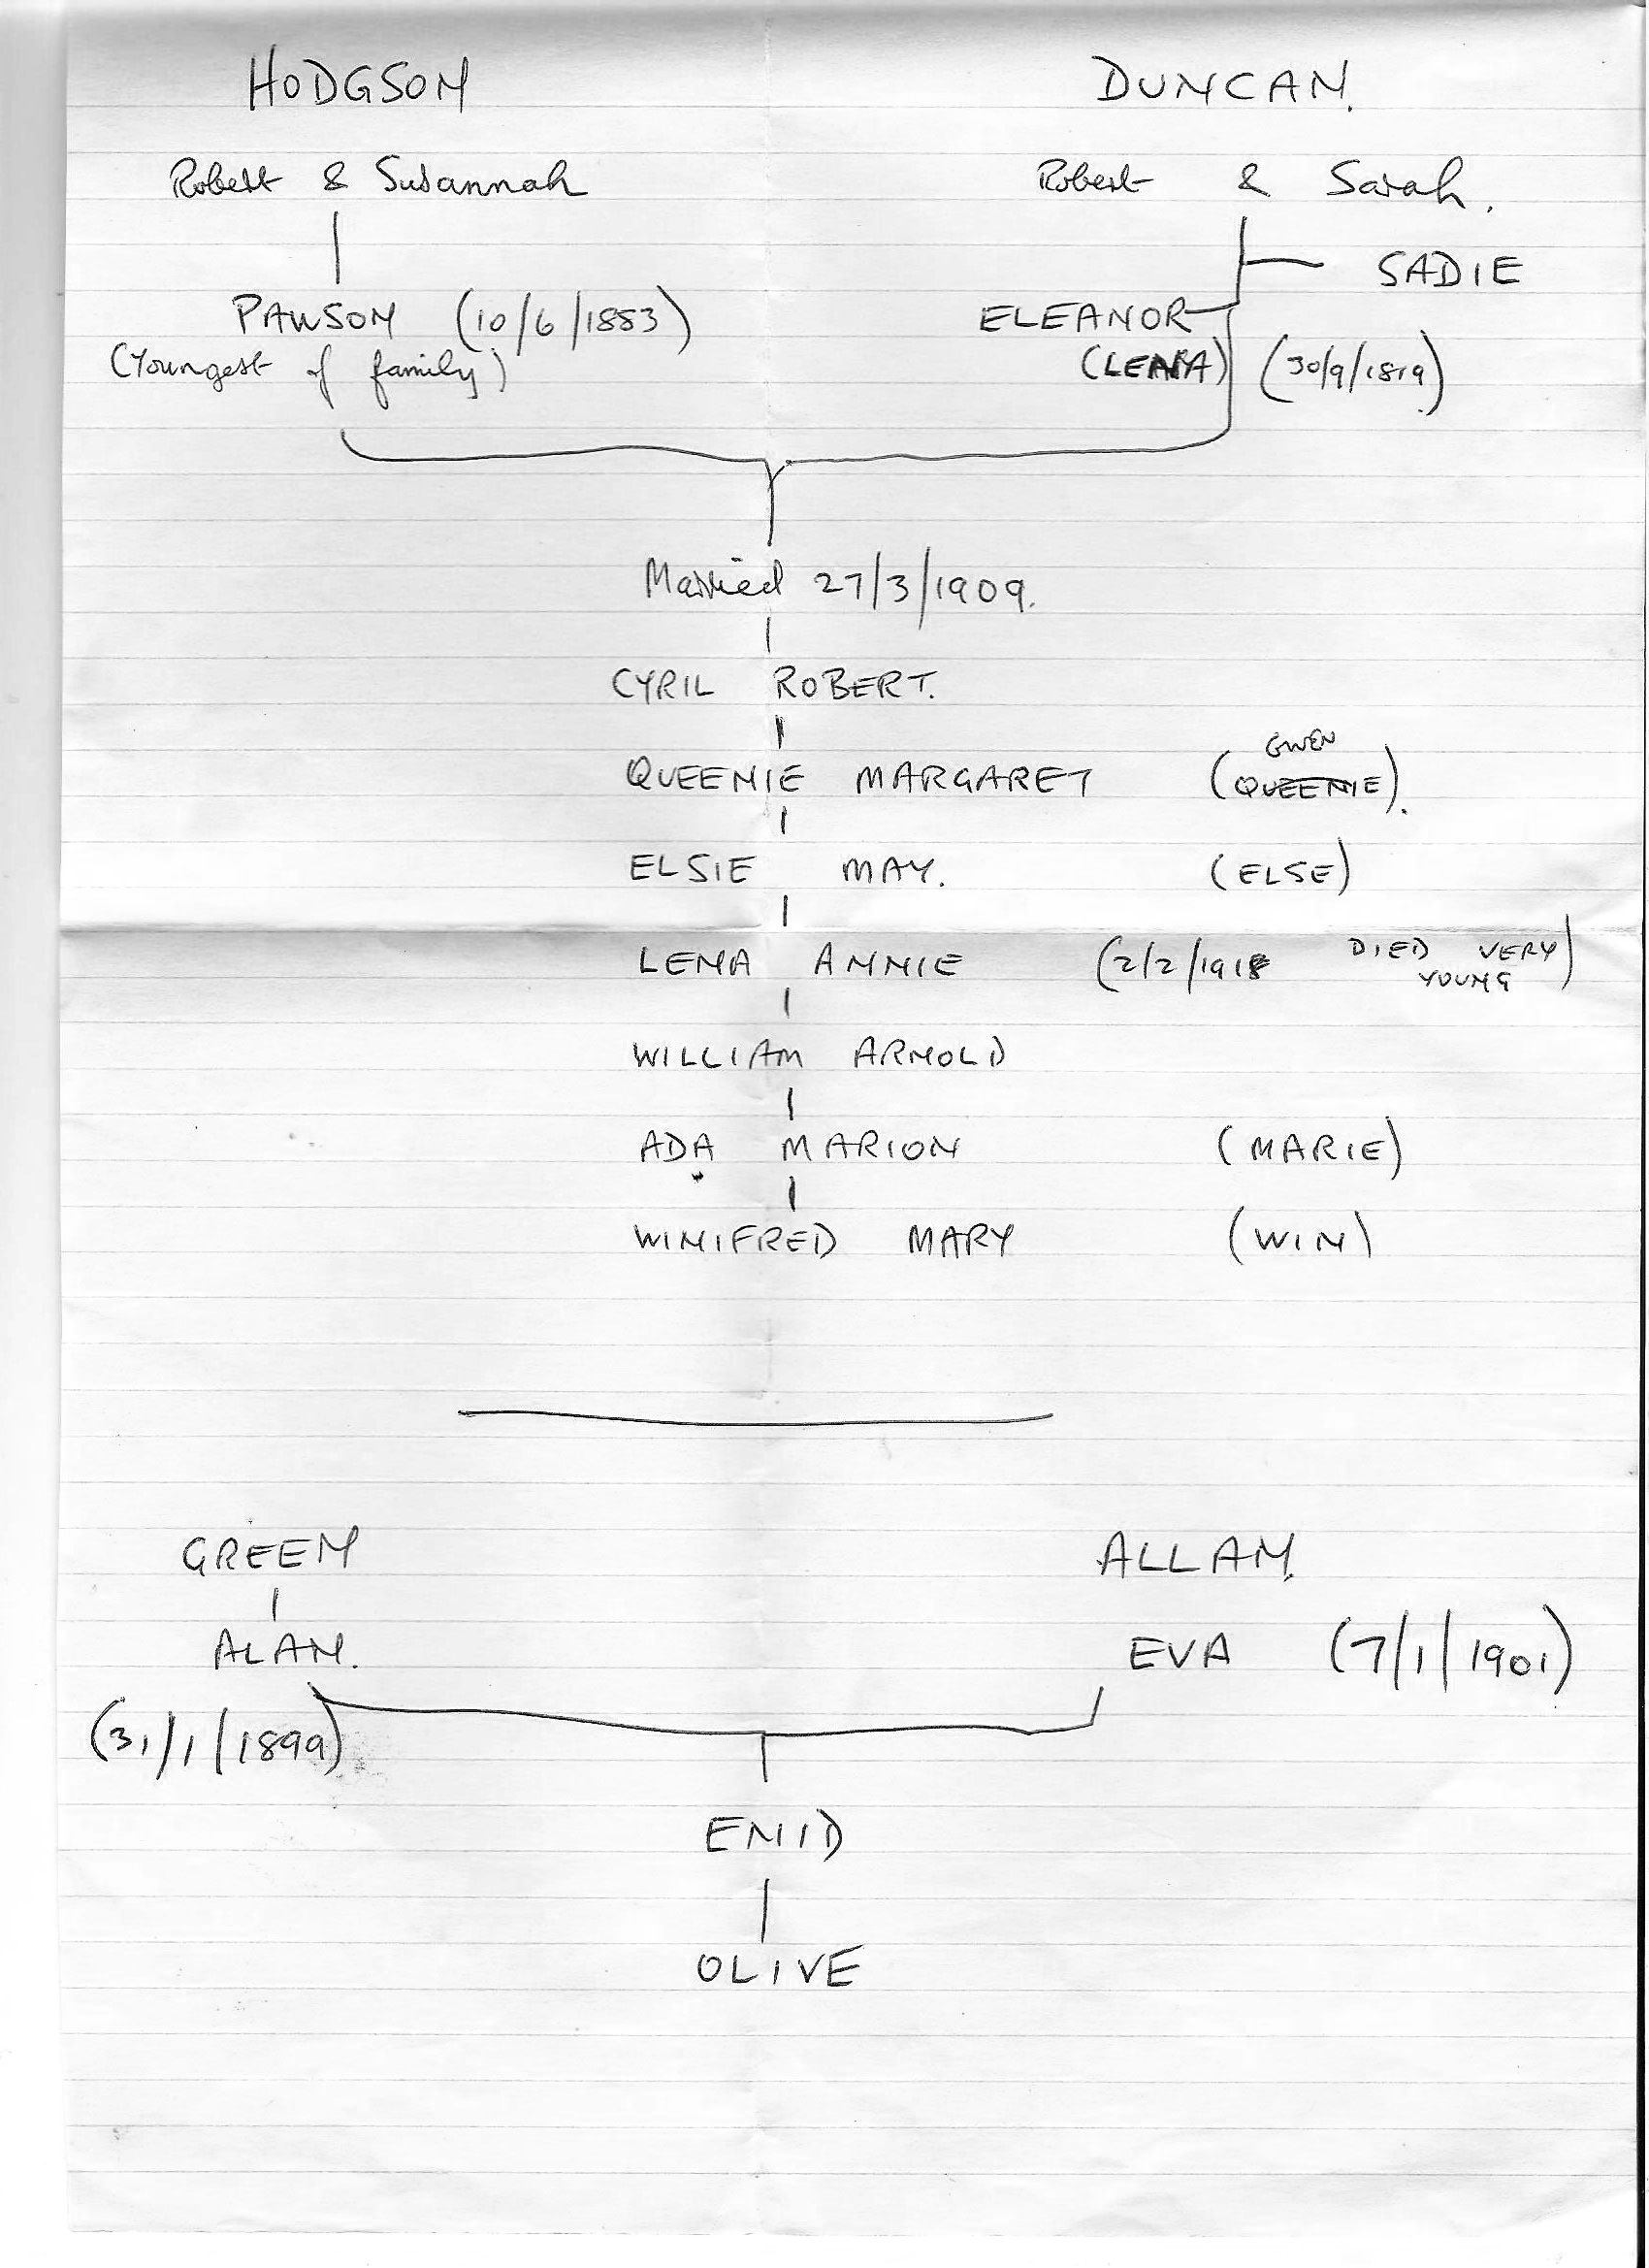 HODGSON DUNCAN.
Robert & Susannah Robert & Sarah.
SADIE
PAWSON (10/6/1883) ELEANOR
(Youngest of family) (LENA) (30/9/1819)
Married 27/3/1909.
CYRIL ROBERT.
GWEN
QUEENIE MARGARET (QUEENIE).
ELSIE MAY. (ELSE)
LENA ANNIE (2/2/1918 DIED VERY
YOUNG)
WILLIAM ARNOLD
ADA MARION (MARIE)
WINIFRED MARY (WIN)
GREEN ALLAN.
ALAN. EVA (7/1/1901)
(31/1/1899)
ENID
OLIVE